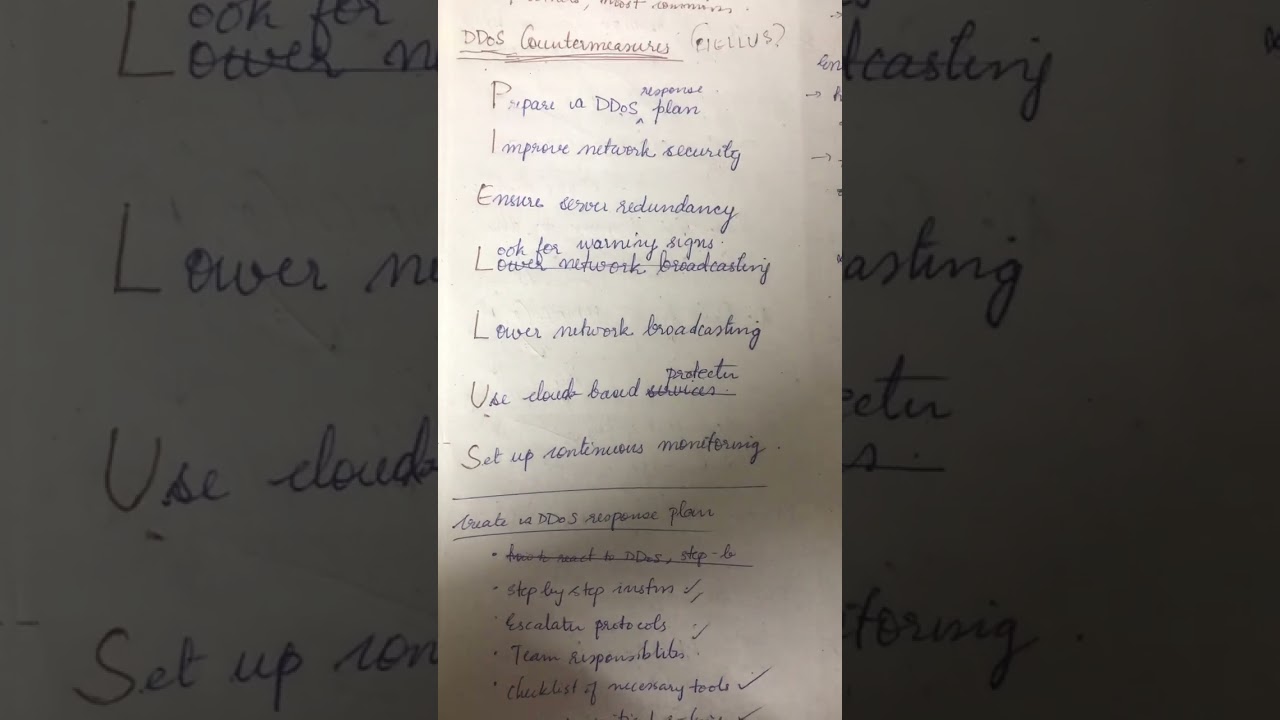 DDoS Countermeasures (PIELLUS?)
response
Prepare a DDoS ^ plan
Improve network security
Ensure server redundancy
ook for warning signs.
Lower network broadcasting
Lower network broadcasting
protectn
Use cloud based services.
Set up continuous monitoring.
Create a DDoS response plan
• how to react to DDoS, step-b
• step by step instrns ✓
• Escalatn protocols ✓
• Team responsiblities.
• checklist of necessary tools ✓